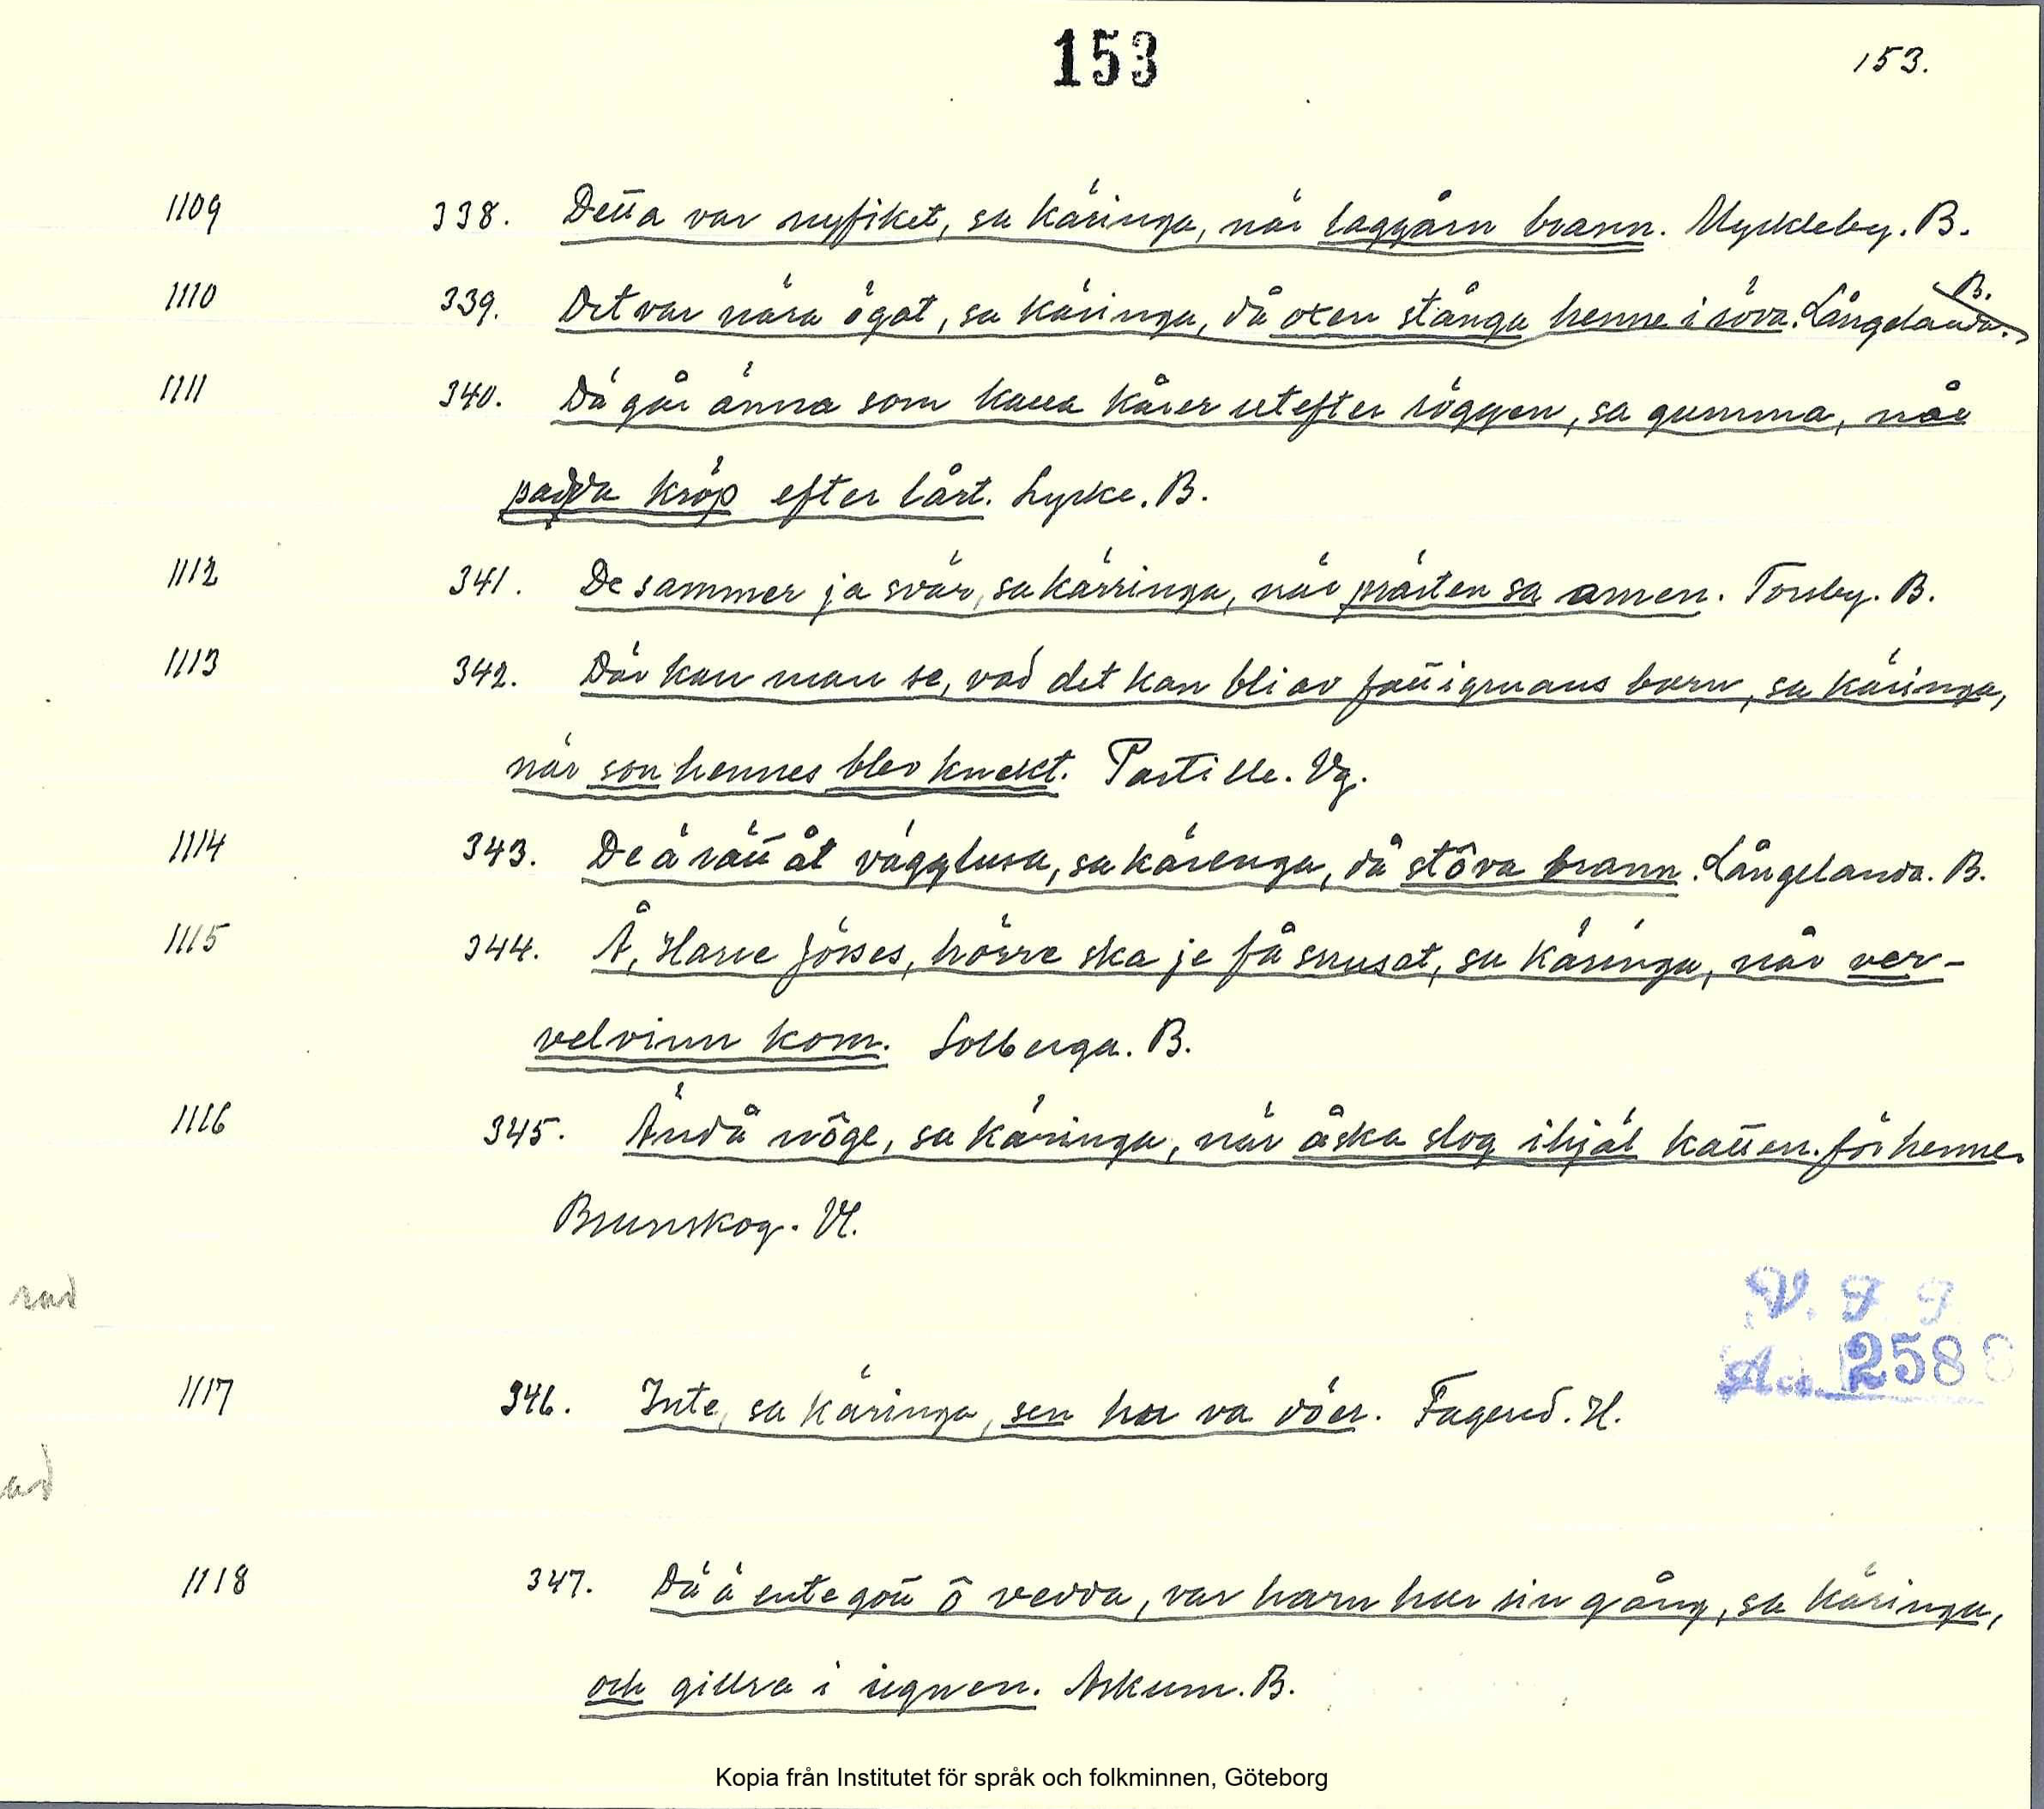 153
153.
1109 338. Detta var nyfiket, sa käringa, när laggårn brann. Myckleby. B.
1110 339. Det var nära ögat, sa käringa, då oxen stånga henne i röva. Långelanda. B.
1111 340. Dä går änna som kalla kårer utefter röggen, sa gumma, når
padda kröp efter lårt. Lyrke. B.
1112 341. De sammer ja svär, sa kärringa, när prästen sa amen. Torsby. B.
1113 342. Där kan man se, vad det kan bli av fattigmans barn, sa käringa,
när son hennes blev knekt. Partille. Vg.
1114 343. De ä rätt åt vägglusa, sa kärenga, då stôva brann. Långelanda. B.
1115 344. Å, Harre Jösses, hörre ska je få snusat, sa käringa, når ver-
velvinn kom. Solberga. B.
1116 345. Ändå nôge, sa käringa, när åska slog ihjäl katten för henne.
Brunskog. Vl.
rad
V. F. F.
Acc. 2588
1117 346. Inte, sa käringa, sen hu va döer. Fagered. H.
ad
1118 347. Dä ä ente gött ô vedda, var harn har sin gång, sa käringa,
och gillra i ugnen. Askum. B.
Kopia från Institutet för språk och folkminnen, Göteborg